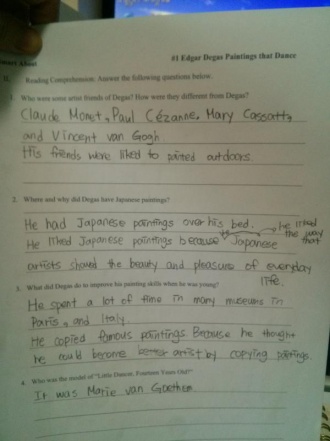 #1 Edgar Degas Paintings that Dance
II. Reading Comprehension: Answer the following questions below.
1. Who were some artist friends of Degas? How were they different from Degas?
Claude Monet, Paul Cézanne, Mary Cassatt,
and Vincent van Gogh.
His friends were liked to painted outdoors.
2. Where and why did Degas have Japanese paintings?
He had Japanese paintings over his bed. he liked
He liked Japanese paintings because Japanese the way that
artists showed the beauty and pleasure of everyday
life.
3. What did Degas do to improve his painting skills when he was young?
He spent a lot of time in many museums in
Paris, and Italy.
He copied famous paintings Because he thought
he could become artist by copying paintings.
4. Who was the model of "Little Dancer, Fourteen Years Old?"
It was Marie van Goethem.